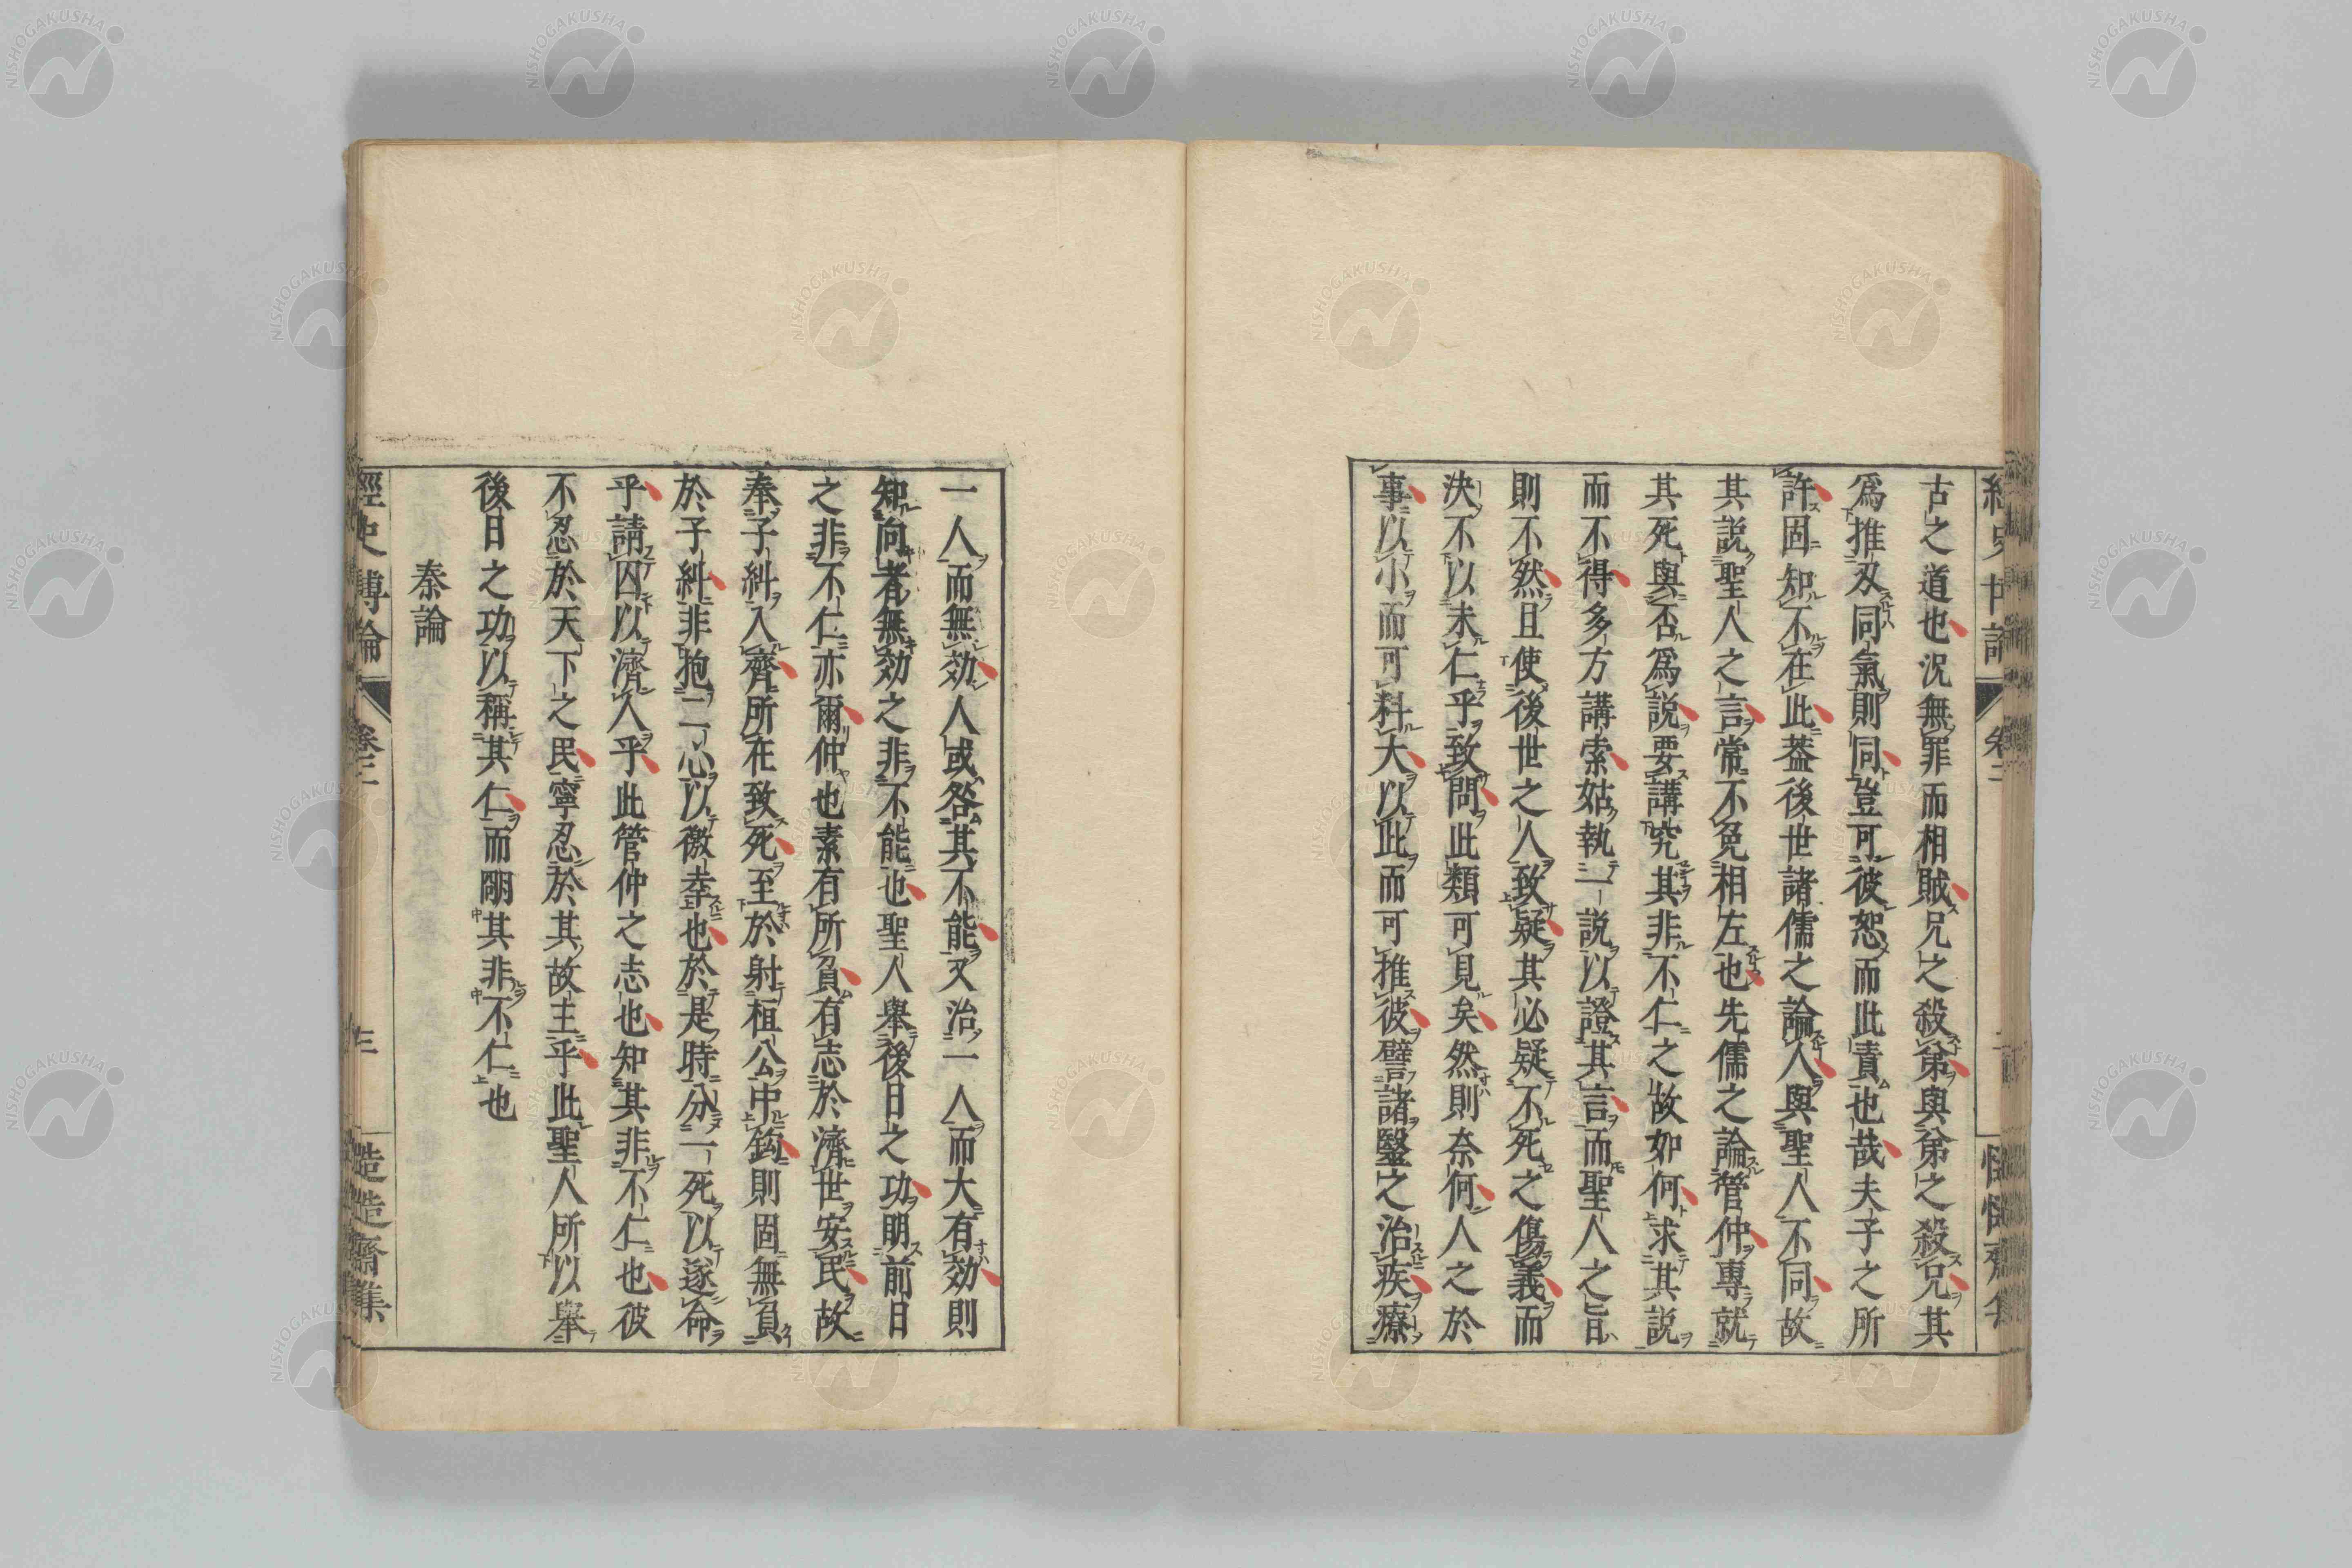 古之道也況無罪而相賊兄之殺弟與弟之殺兄其
爲推刃同氣則同豈可彼恕而此責也哉夫子之所
許固知不在此葢後世諸儒之論人與聖人不同故
其説聖人之言常不免相左也先儒之論管仲專就
其死與否爲説要講究其非不仁之故如何求其説
而不得多方講索姑執一説以證其言而聖人之旨
則不然且使後世之人致疑其必疑不死之傷義而
決不以未仁乎致問此類可見矣然則奈何人之於
事以小而可科大以此而可推彼譬諸醫之治疾療
一人而無効人或咎其不能又治一人而大有効則
知向者無効之非不能也聖人舉後日之功明前日
之非不仁亦爾仲也素有所負有志於濟世安民故
奉子糾入齊所在致死至於射桓公中鈎則固無負
於子糾非抱二心以徼幸也於是時分一死以遂命
乎請囚以濟人乎此管仲之志也知其非不仁也彼
不忍於天下之民寧忍於其故主乎此聖人所以舉
後日之功以稱其仁而明其非不仁也
秦論
經史博論
卷二
慥慥齋集
NISHOGAKUSHA